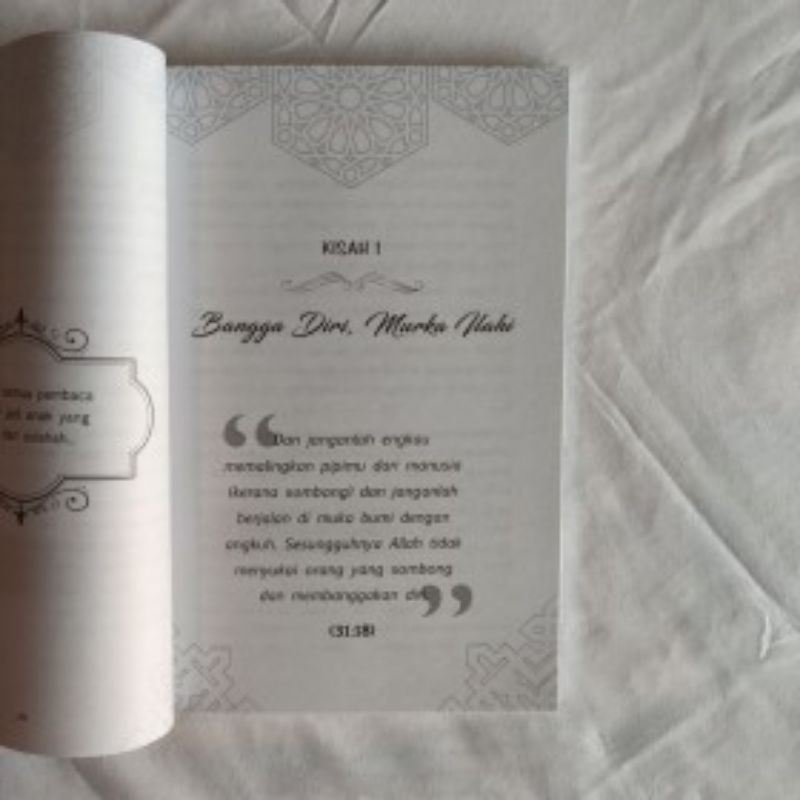 pembaca
anak yang
KISAH 1
Bangga Diri, Murka Ilahi
“Dan janganlah engkau
memalingkan pipimu dari manusia
(kerana sombong) dan janganlah
berjalan di muka bumi dengan
angkuh. Sesungguhnya Allah tidak
menyukai orang yang sombong
dan membanggakan diri”
(31:18)